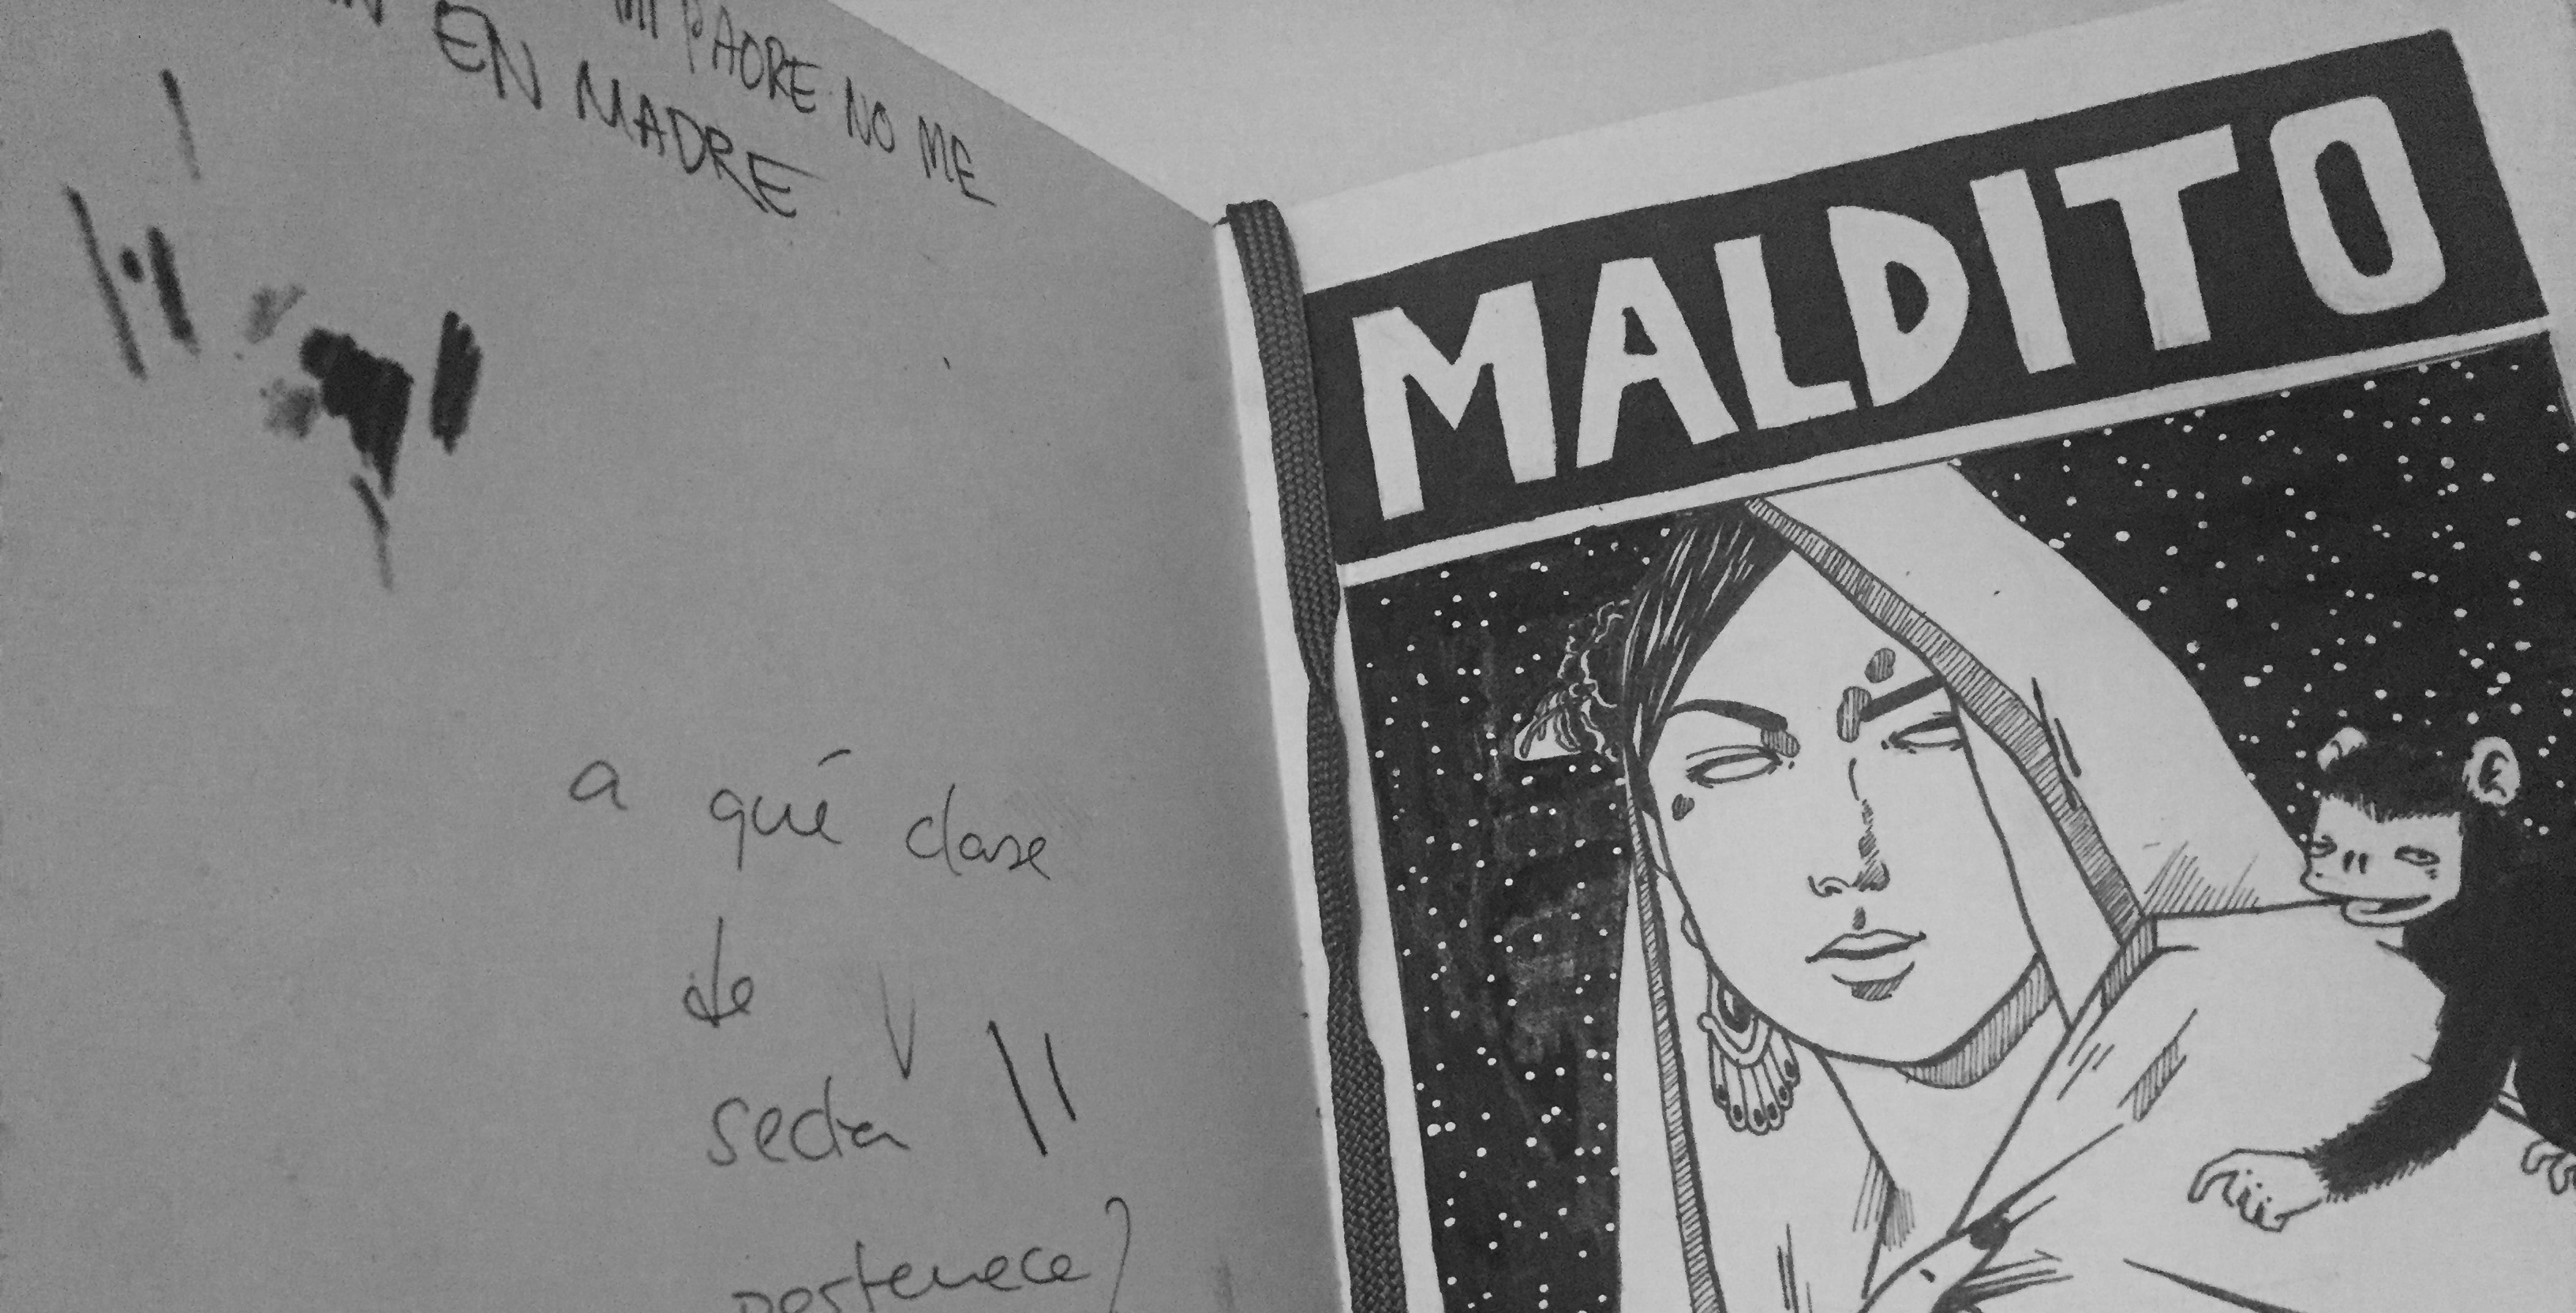 MI PADRE NO ME
EN MADRE
a qué clase
de
secta
pertenece?
MALDITO